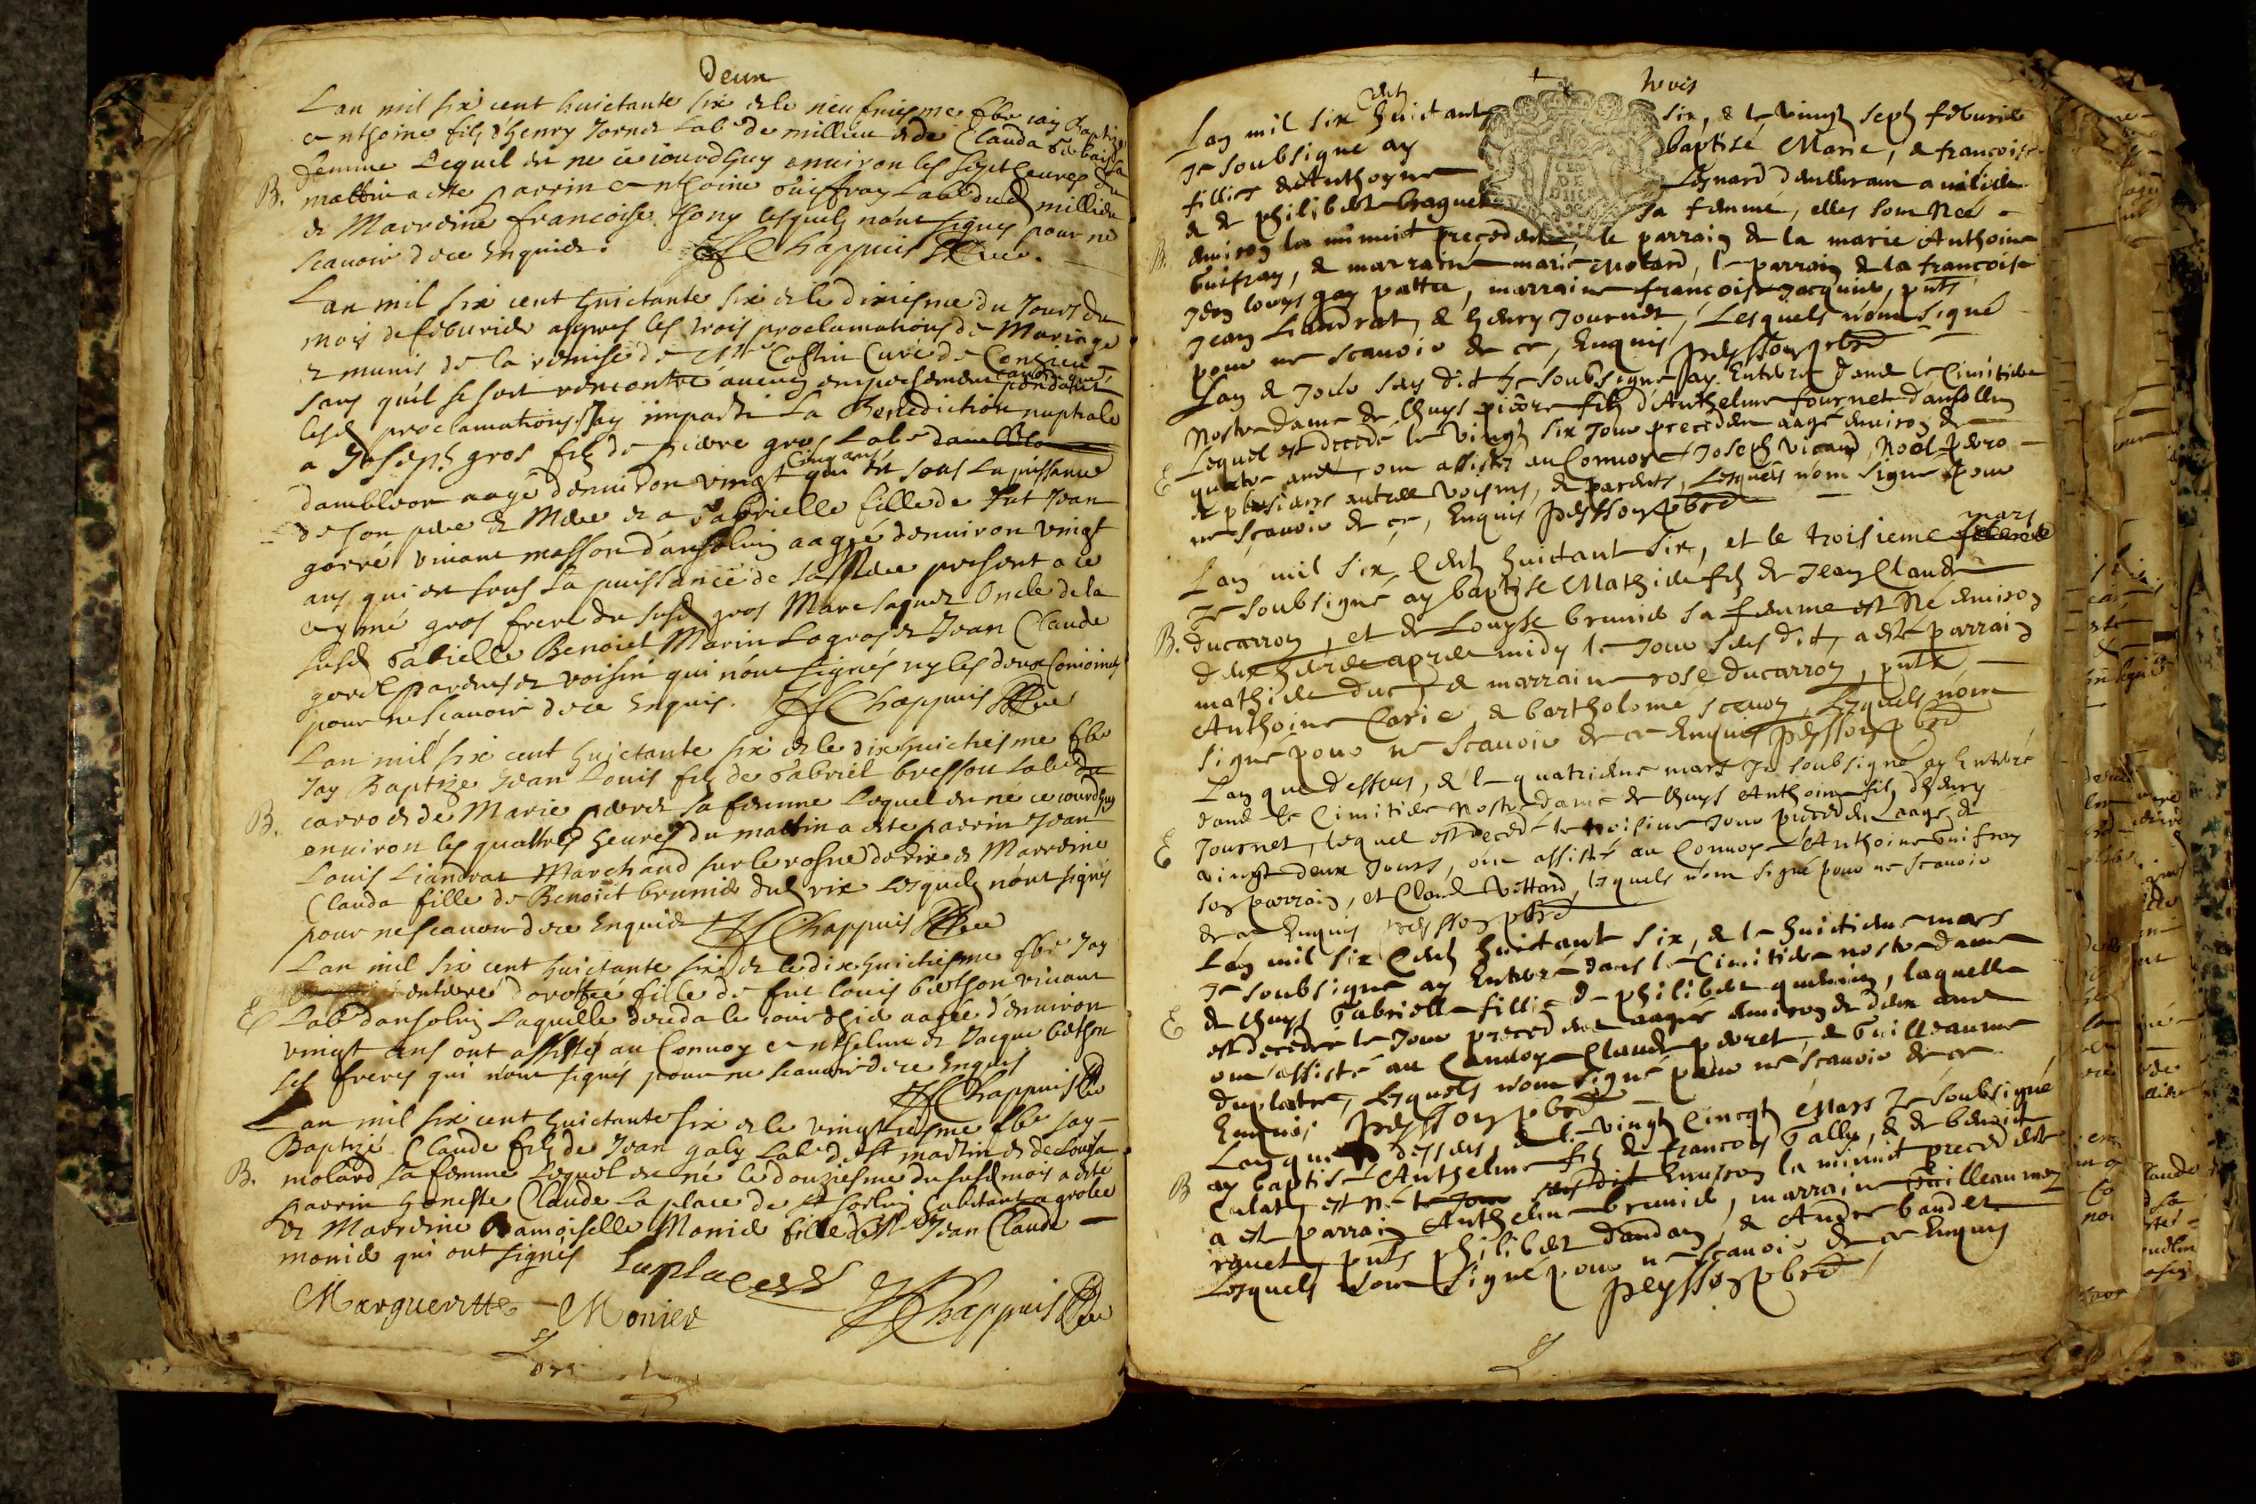 Deux
Lan mil six cent huictante six et le neufuiesme fbr iay Baptizé
Anthoine filz d'henry Jornet Lab de millieu et de Clauda
femme Lequel est ne ce iourdhuy enuiron les sept heures du
B. mattin a este parrin Anthoine Guiffray Lab dud millieu
et Marreine francoise Tony lesquelz nont signes pour ne
scauoir de ce Enquis. Chappuis
Lan mil six cent huictante six et le dixiesme du Jours du
mois de feburier appres les trois proclamations de Mariage
et munis de la remise de Costin Curé de
sans quil se soit rencontré aucun empeschement
lesd proclamations Jay imparti La Benediction nuptiale
a Joseph gros filz de pierre gros Lab
dambleon aagé denuiron vingt Cinq ans qui est sous La puissance
de son pere et Mere et a Gabrielle fille de fut Jean
gorré viuant masson dansolin aagée denuiron vingt
ans qui est sous La puissance de sa Mere present a ce
Aymé gros frere du susd gros Marc Oncle de la
susd Gabrielle Benoict Marin Lagros et Jean Claude
parens et voisin qui nont signés ny les deux Conioincts
pour ne scauoir de ce Enquis. Chappuis
Lan mil six cent huictante six et le dix huictiesme fbr
Jay Baptize Jean Louis filz de Gabriel bresson Lab
B. carro et de Marie perret sa femme Lequel est né ce iourdhuy
enuiron les quattres heures du mattin a este parrin Jean
Louis Liandrat Marchand sur le rosne de rix et Marreine
Clauda fille de Benoict brunier dud rix Lesquelz nont signés
pour ne scauoir de ce Enquis Chappuis
Lan mil six cent huictante six et le dix huictiesme fbr Jay
enterré dorothé fille de fut Louis berthon viuant
E Lab dansolin Laquelle deceda le iour dhier aagée denuiron
vingt ans ont assisté au Conuoy Anthelme et Jacque berthon
ses freres qui nont signés pour ne scauoir de ce Enquis
Chappuis
Lan mil six cent huictante six et le vingtiesme fbr Jay
Baptizé Claude filz de Jean galy Lab de st martin et de Louisa
B. molard sa femme Lequel est né le douziesme du susd mois a este
parrin honeste Claude La place de st sorlin habitant a grolee
et Marreine Damoiselle Monier fille de Jean Claude
monier qui ont signés Laplace
Margueritte Monier Chappuis
trois
Lan mil six Cent huictant six, et le vingt sept feburier
Je soubsigné ay baptisé Marie, et francoise
fillies de Anthoyne
et de philiberte braguet sa femme, elles sont Née
B. enuiron la minuit precedente, le parrain de la marie Anthoine
Guifray, et marraine marie Molard, le parrain de la francoise
Jean louys gay patta, marraine francoise Jacquier, pnts
Jean Liandrat, et henry Journet, Lesquels nont signé
pour ne scauoir de ce, Enquis peysson pbre
Lan et Jour sus dit Je soubsigné ay Enterré dans le Cimitiere
Nostre dame de lhuys pierre filz d'Anthelme fournet dansollin
E Lequel est decedé le vingt six Jour precedent aagé enuiron de
quatre ans, ont assistés au Conuoy Joseph vicard, Noel perro
et plusieurs autres voisins, et parents, Lesquels nont signé pour
ne scauoir de ce, Enquis peysson pbre
Lan mil six Cent huictant six, et le troisieme mars
Je soubsigné ay baptisé Mathieu filz de Jean Claude
B. ducarroz, et de Louyse brunier sa femme est Né enuiron
deux heures apres midy le Jour sus dit, a esté parrain
mathieu duc, et marraine rose ducarroz, pnts
Anthoine Carie, et bartholome Lesquels nont
signé pour ne scauoir de ce Enquis peysson pbre
Lan que dessus, et le quatrieme mars Je soubsigné ay Enterré
dans le Cimitiere Nostre dame de lhuys Anthoine filz dhenry
E Journet, lequel est decedé le troisieme Jour precedent aagé de
vingt deux Jours, ont assisté au Conuoy Anthoine Guifray
son parrain, et Claude Vittard, lesquels nont signé pour ne scauoir
de ce Enquis peysson pbre
Lan mil six Cent huictant six, et le huictieme mars
Je soubsigné ay Enterré dans le Cimitiere nostre dame
E de lhuys Gabrielle fillie de philibert laquelle
est decedée le Jour precedent aagée enuiron de deux ans
ont assisté au Conuoy Claude perret, et Guilleaume
duplatre, Lesquels nont signé pour ne scauoir de ce
Enquis, peysson pbre
Lan que dessus, et le vingt Cinqt Mars Je soubsigné
B ay baptisé Anthelme filz de francois Gallix, et de benoite
est Né enuiron la minuit precedente
a est parrain Anthelme brunier, marraine Guilleaumaz
pnts philibert dandan, et Andre baudet
Lesquels nont signé pour ne scauoir de ce Enquis
peysson pbre